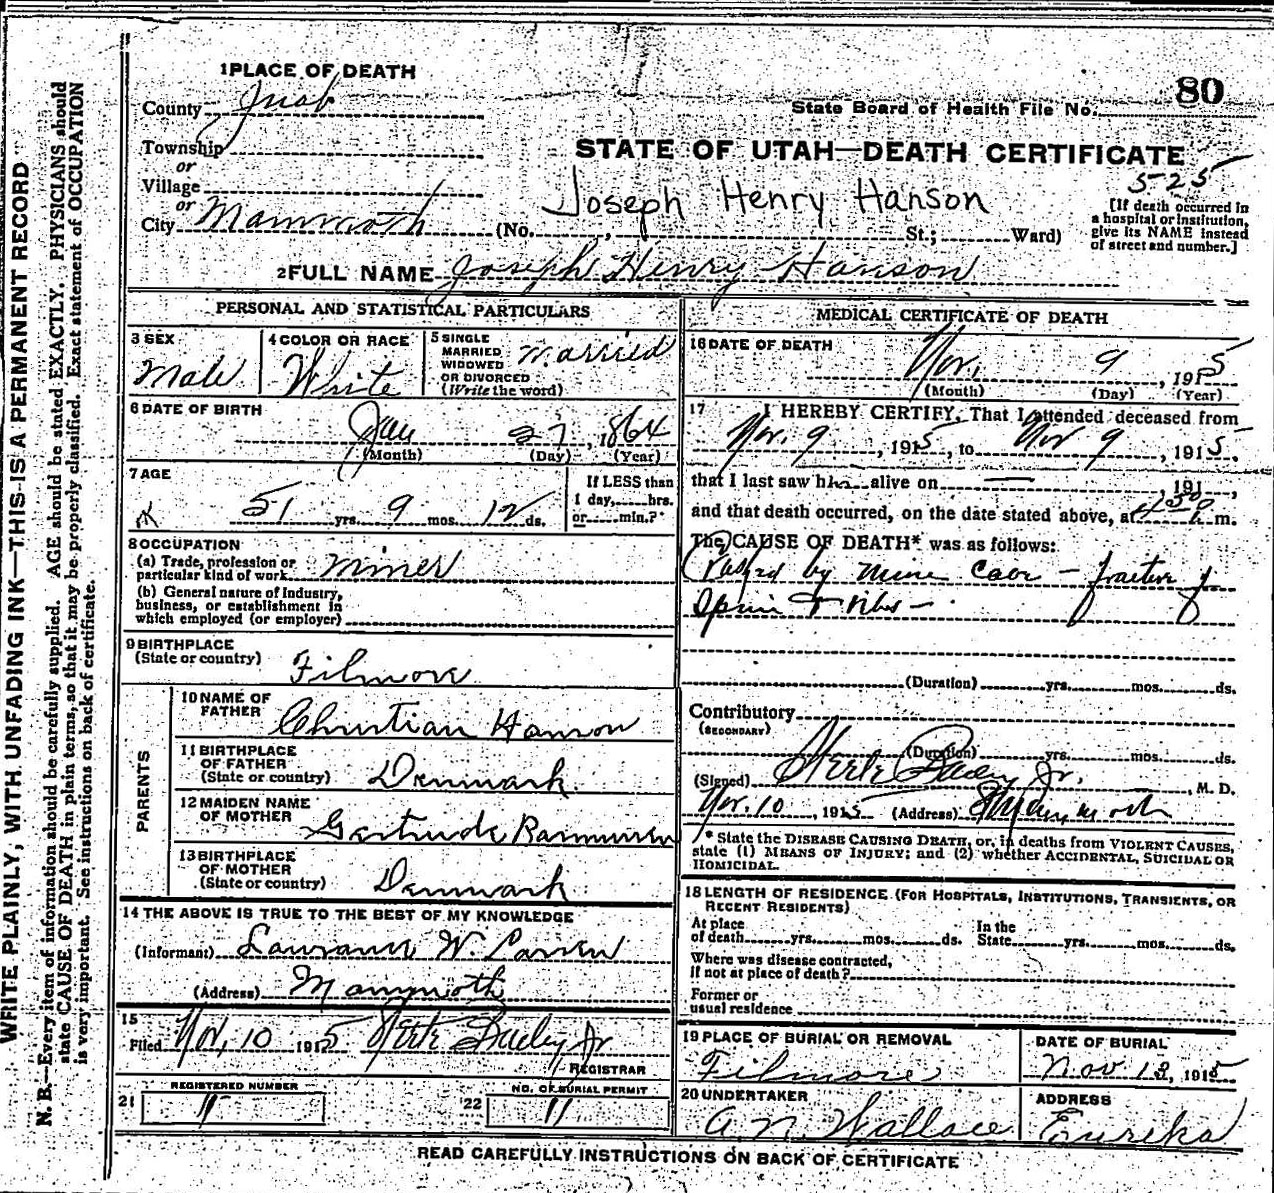 WRITE PLAINLY, WITH UNFADING INK—THIS IS A PERMANENT RECORD
N. B.—Every item of information should be carefully supplied. AGE should be stated EXACTLY. PHYSICIANS should
state CAUSE OF DEATH in plain terms, so that it may be properly classified. Exact statement of OCCUPATION
is very important. See instructions on back of certificate.
1 PLACE OF DEATH
County Juab
Township
or
Village
or
City Mammoth (No. , St.; Ward)
80
State Board of Health File No.
STATE OF UTAH—DEATH CERTIFICATE
525
Joseph Henry Hanson
[If death occurred in
a hospital or institution,
give its NAME instead
of street and number.]
2 FULL NAME Joseph Henry Hanson
PERSONAL AND STATISTICAL PARTICULARS
3 SEX
Male
4 COLOR OR RACE
White
5 SINGLE
MARRIED
WIDOWED
OR DIVORCED
(Write the word)
Married
6 DATE OF BIRTH
Jan 27, 1864
(Month) (Day) (Year)
7 AGE
51 yrs. 9 mos. 12 ds.
If LESS than
1 day, hrs.
or min.?
8 OCCUPATION
(a) Trade, profession or
particular kind of work Miner
(b) General nature of Industry,
business, or establishment in
which employed (or employer)
9 BIRTHPLACE
(State or country) Filmore
PARENTS
10 NAME OF
FATHER Christian Hanson
11 BIRTHPLACE
OF FATHER
(State or country) Denmark
12 MAIDEN NAME
OF MOTHER Gertrude Rasmussen
13 BIRTHPLACE
OF MOTHER
(State or country) Denmark
14 THE ABOVE IS TRUE TO THE BEST OF MY KNOWLEDGE
(Informant) W. Larsen
(Address) Mammoth
15
Filed Nov. 10 1915 Steele Bailey Jr
REGISTRAR
REGISTERED NUMBER
21 11
NO. OF BURIAL PERMIT
22 11
MEDICAL CERTIFICATE OF DEATH
16 DATE OF DEATH
Nov. 9, 1915
(Month) (Day) (Year)
17 I HEREBY CERTIFY, That I attended deceased from
Nov. 9, 1915, to Nov 9, 1915.
that I last saw him alive on — 191 ,
and that death occurred, on the date stated above, at P m.
The CAUSE OF DEATH* was as follows:
Crushed by mine cave – fracture of
Spine & ribs –
(Duration) yrs. mos. ds.
Contributory
(SECONDARY)
(Duration) yrs. mos. ds.
(Signed) Steele Bailey Jr. , M. D.
Nov. 10, 1915 (Address) Mammoth
* State the DISEASE CAUSING DEATH, or, in deaths from VIOLENT CAUSES,
state (1) MEANS OF INJURY; and (2) whether ACCIDENTAL, SUICIDAL OR
HOMICIDAL.
18 LENGTH OF RESIDENCE (FOR HOSPITALS, INSTITUTIONS, TRANSIENTS, OR
RECENT RESIDENTS)
At place
of death yrs. mos. ds.
In the
State yrs. mos. ds.
Where was disease contracted,
if not at place of death?
Former or
usual residence
19 PLACE OF BURIAL OR REMOVAL
Filmore
DATE OF BURIAL
Nov 13, 1915
20 UNDERTAKER
A. N. Wallace
ADDRESS
Eureka
READ CAREFULLY INSTRUCTIONS ON BACK OF CERTIFICATE